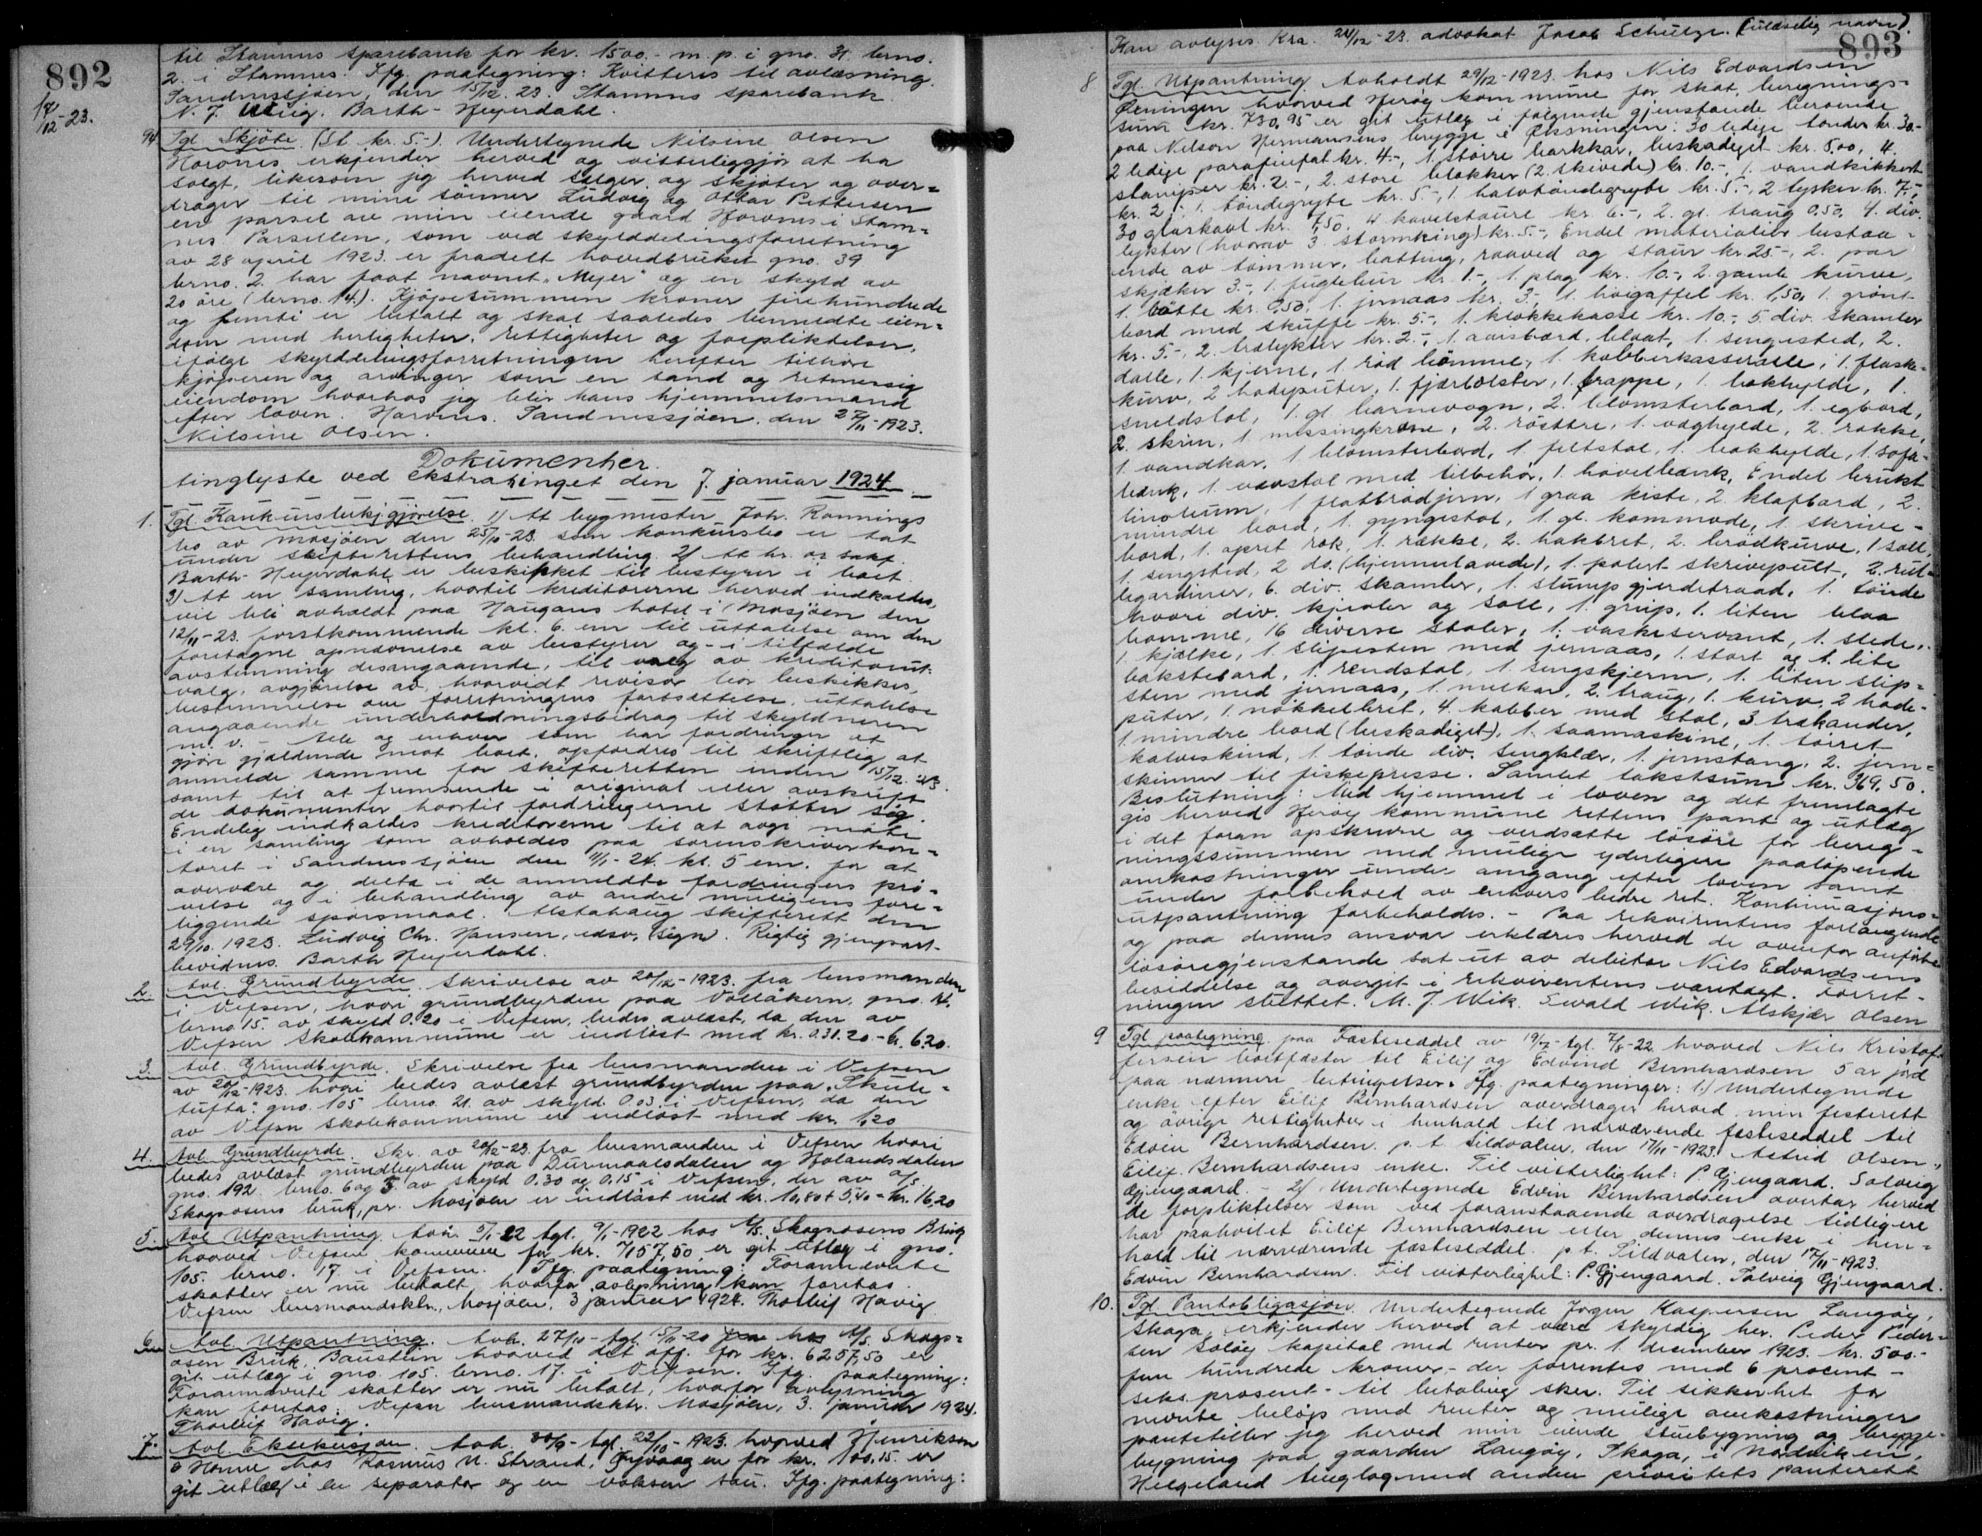 892
17/12-23.
til Stamnes sparebank for kr. 1500.- m. p. i gno. 31 brno.
2. i Stamnes. Ifg. paategning: Kvitteres til avlæsning.
Sandnessjöen, den 15/12. 23. Stamnes sparebank.
N. J. Barth-Heyerdahl.
94 Tgl. Skjöte. (St. kr. 5.-). Undertegnede Nilsine Olsen
Horvnes erkjender herved og vitterliggjör at ha
solgt, likesom jeg herved sælger og skjöter og over-
drager til mine sönner Ludvig og Ottar Pettersen
en parsel av min eiende gaard Horvnes i Stam-
nes. Parsellen, som ved skylddelingsforretning
av 28 april 1923 er fradelt hovedbruket gno. 39
brno. 2. har faat navnet "Meyer" og en skyld av
20 öre (brno. 14). Kjöpesummen kroner firehundrede
og femti er betalt og skal saaledes bemeldte eien-
dom med herligheter, rettigheter og forpliktelser,
ifölge skylddelingsforretningen herefter tilhöre
kjöperen og arvinger som en sand og retmæssig
eiendom hvorhos jeg blir hans hjemmelsmand
efter loven. Horvnes. Sandnessjöen, den 27/11-1923.
Nilsine Olsen.
Dokumenter
tinglyste ved ekstratinget den 7. januar 1924.
1. Tgl. Konkursbekjgjörelse. 1) At bygmester Joh. Rönnings
bo av Mosjöen den 25/10-23 som konkursbo er tat
under skifterettens behandling. 2) At hr. o.r. sakf.
Barth-Heyerdahl er beskikket til bestyrer i boet.
3) At en samling, hvortil kreditorerne herved indkaldes,
vil bli avholdt paa Haugans hotel i Mosjöen den
12/11-23. förstkommende kl. 6. em til uttalelse om den
foretagne opnævnelse av bestyrer og - i tilfælde
avstemning desangaaende, til valg av kreditorut-
valg, avgjörelse av, hvorvidt revisor bör beskikkes,
bestemmelse om forretningens fortsættelse, uttalelse
angaaende underholdningsbidrag til skyldneren
m. v. Alle og enhver som har fordringer at
gjöre gjældende mot boet, opfordres til skriftlig at
anmelde samme for skifteretten inden 15/12. 23.
samt til at fremsende i original eller avskrift
de dokumenter hvortil fordringerne stötter sig.
Endelig indkaldes kreditorerne til at avgi möte
i en samling som avholdes paa sorenskriverkon-
toret i Sandnessjöen den 11/1-24. kl. 5 em. for at
overvære og delta i de anmeldte fordringers prö-
velse og i behandling av andre muligens fore-
liggende spörsmaal. Alstahaug skifterett den
29/10. 1923. Ludvig Chr. Hansen, edsv. (sign). Rigtig gjenpart
bevidnes. Barth Heyerdahl.
2. Avl. Grundbyrde. Skrivelse av 20/12-1923. fra lensmanden
i Vefsen, hvori grundbyrden paa Vollåkern gno.
brno 15. av skyld 0.20 i Vefsen, bedes avlæst, da den av
Vefsen skolekommune er indlöst med kr. 0.31.20 - kr. 6.20.
3. Avl. Grundbyrde. Skrivelse fra lensmanden i Vefsen
av 20/12-1923. hvori bedes avlæst grundbyrden paa "Skule-
tufta". gno. 105 brno. 21. av skyld 0.03. i Vefsen, da den
av Vefsn skolekommune er indlöst med kr. 1,20
4. Avl. Grundbyrde. Skr. av 20/12-23 fra lensmanden i Vefsen hvori
bedes avlæst grundbyrden paa Durmaalsdalen og Holandsdalen
gno. 192 brno. 6 og 5 av skyld 0.30 og 0.15 i Vefsen, der av A/S
Skogsosens bruk, pr. Mosjöen er indlöst med kr. 10,80 + 5,40 = kr. 16,20
5. Avl. Utpantning. Avh. 5/1-22 tgl. 9/1-1922 hos A/S. Skogsosens Bruk
hvorved Vefsen kommune for kr. 7157,50 er git utlæg i gno.
105. brno. 17. i Vefsen. Ifg. paategning: Forannævnte
skatter er nu betalt, hvorfor avlysning kan foretas.
Vefsen lensmandsktr., Mosjöen, 3 januar 1924. Thorleif Havig
6. Avl. Utpantning. Avh. 27/10-tgl. 15/11-20 hos A/S. Skogs-
osen Bruk, Baustein hvorved det off. for kr. 6257,50 er
git utlæg i gno. 105. brno. 17. i Vefsen. Ifg. paategning:
Forannævnte skatter er nu betalt, hvorfor avlysning
kan foretas. Vefsn lensmandsktr. Mosjöen, 3. januar 1924.
Thorleif Havig.
7. Avl. Eksekusjon. Avh. 20/9-tgl. 22/10-1923. hvorved Henriksen
& Horne hos Rasmus N. Strand, for kr. 100,15. er
git utlæg i en separator og en voksen sau. Ifg. paategning:
893
Kan avlyses. Kra. 24/12-23. advokat Jacob Schulze. (ulæselig navn)
8 Tgl. Utpantning. Avholdt 29/12-1923 hos Nils Edvardsen
Öksningen hvorved Heröy kommune for skat, beregnings-
sum kr. 730,95 er git utlæg i fölgende gjenstande beroende
paa Nelson Hermansens brygge i Öksningen: 30 ledige tönder kr. 30.-
2 ledige parafinfat kr. 4.-, 1. större barkkar, beskadiget kr. 5,00, 4.
stamper kr. 2.-, 2. store blokker (2. skivede) kr. 10.-, 1. vandkikkert
kr. 2.-, 1. töndegryte kr. 5.-, 1 halvtöndegryte kr. 5.-, 2 lysker kr. 7.-,
30 glaskavl kr. 7,50. 4 kavelstaure kr. 6.-, 2. gl. traug 0,50, 4. div.
lykter (hvorav 3 stormking) kr. 5.-, Endel materialer bestaa-
ende av tömmer, batting, raaved og staur kr. 25.-, 2. par
skjæker 3.-, 1. fuglebur kr. 1.-, 1 plog kr. 10.-, 2. gamle kurve,
1. bötte kr. 0,50, 1. jernaas kr. 3.-, 1. höigaffel kr. 1,50, 1. grönt
bord med skuffe kr. 5.-, 1. klokkekasse kr. 10.-, 5 div. skamler
kr. 5.-, 2. trælykter kr. 2.-, 1. avisbord, blaat, 1. sengested, 2.
dalle, 1. kjerne, 1 röd bömme, 1. kobberkasserolle, 1. flaske-
kurv, 2 hodeputer, 1. fjærbolster, 1. trappe, 1. bokhylde, 1.
sneldstol, 1. gl. barnevogn, 2. blomsterbord, 1. egbord,
2 skrin, 1 messingkrone, 2. röstbre, 1. væghylde, 2. rokke,
1. vandkar, 1 blomsterbord, 1 feltstol, 1. bokhylde, 1. sofa-
bænk, 1. vævstol med tilbehör, 1. hövelbænk, Endel brukt
linoleum, 1 flatbrödjern, 1 graa kiste, 2. klafbord, 2.
mindre bord, 1. gyngestol, 1. gl. kommode, 1. skrive-
bord, 1. opret rok, 1. række, 2. bakbret, 2. brödkurve, 1 soll,
1. sengsted, 2 do. (hjemmelavede), 1. polert skrivepult, 2. rul-
legardiner, 6. div. skamler, 1. stump gjerdetraad, 1. tönde
hvori div. kjeler og soll, 1. grup, 1. liten blaa
bomme, 16 diverse stoler, 1. vaskeservant, 1. slede,
1 kjælke, 1. slipesten med jernaas, 1. stort og 1. lite
bakstebord, 1. rendstol, 1. sengskjerm, 1. liten slip-
sten med jernaas, 1. melkar, 2. traug, 1. kurv, 2 hode-
puter, 1. nökkelbret, 4. kobber med stol, 3. trækander,
1. mindre bord (beskadiget), 1. saamaskine, 1. törret
kalveskind, 1. tönde div. sengklær, 1. jernstang, 2. jern-
skinner til fiskepresse. Samlet takstsum kr. 369,50.
Beslutning: Med hjemmel i loven og det fremlagte
gis herved Heröy kommune rettens pant og utlæg
i det foran opskrevne og verdsatte lösöre for bereg-
ningssummen med mulige yderligere paalöpende
omkostninger inden omgang efter loven samt
under forbehold av enhvers bedre ret. Kontinuasjons-
utpantning forbeholdes. - Paa rekvirentens forlangende
og paa dennes ansvar erklæres herved de ovenfor anförte
lösöregjenstande sat ut av debitor Nils Edvardsens
besiddelse og avgit i rekvirentens varetagt. Forret-
ningen sluttet. M. J. Wik. Ewald Wik. Alskjær Olsen
9 Tgl. paategning paa Fæsteseddel av 19/7-tgl. 7/8-22 hvorved Nils Kristof-
fersen bortfæster til Eilif og Edvind Bernhardsen 5 ar jord
paa nærmere betingelser. Ifg. paategninger: 1) Undertegnede
enke efter Eilif Bernhardsen overdrager herved min festerett
og övrige rettigheter i henhold til nærværende fæsteseddel til
Edvin Bernhardsen. p. t. Sildvalen, den 17/11-1923. Astrid Olsen,
Eilif Bernhardsens enke. Til vitterlighet: P. Gjengaard. Solveig
Gjengaard. - 2) Undertegnede Edvin Bernhardsen overtar herved
de forpliktelser som ved foranstaaende overdragelse tidligere
har paahvilet Eilif Bernhardsen eller dennes enke i hen-
hold til nærværende fæsteseddel. p. t. Sildvalen, den 17/11-1923.
Edvin Bernhardsen. Til vitterlighet: P. Gjengaard. Solveig Gjengaard.
10. Tgl. Pantobligasjon. Undertegnede Jörgen Kaspersen Langöy,
Skaga, erkjender herved at være skyldig hr. Peder Peder-
sen Solöy kapital med renter pr. 1. desember 1923. kr. 500.-
fem hundrede kroner - der forrentes med 6 procent -
seks prosent - til betaling sker. Til sikkerhet for
nævnte belöp med renter og mulige omkostninger
pantsetter jeg herved min eiende stuebygning og brygge-
bygning paa gaarden Langöy, Skaga, i Nordviken,
Helgeland tinglag med anden prioritets panterett